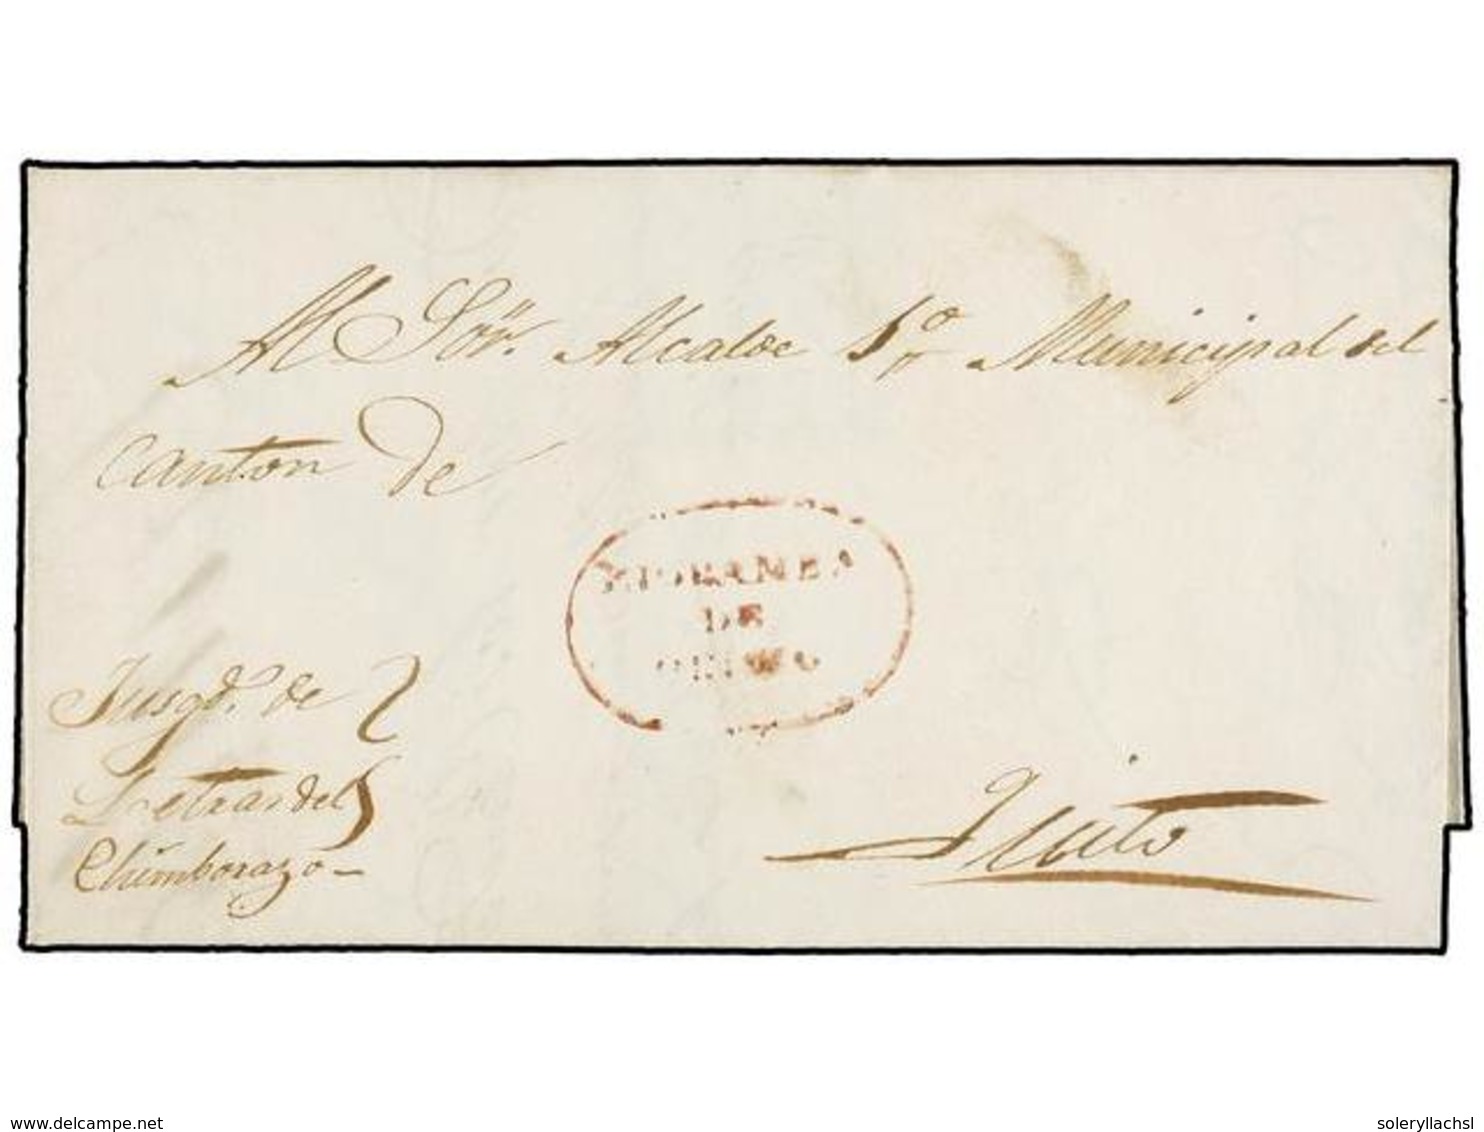 Al Sör. Alcalde 1º Municipal del
Canton de
RIOBAMBA
DE
OFICIO
Jusgdo. de
Letras del
Chimborazo—
Quito
www.delcampe.net
soleryllachsl